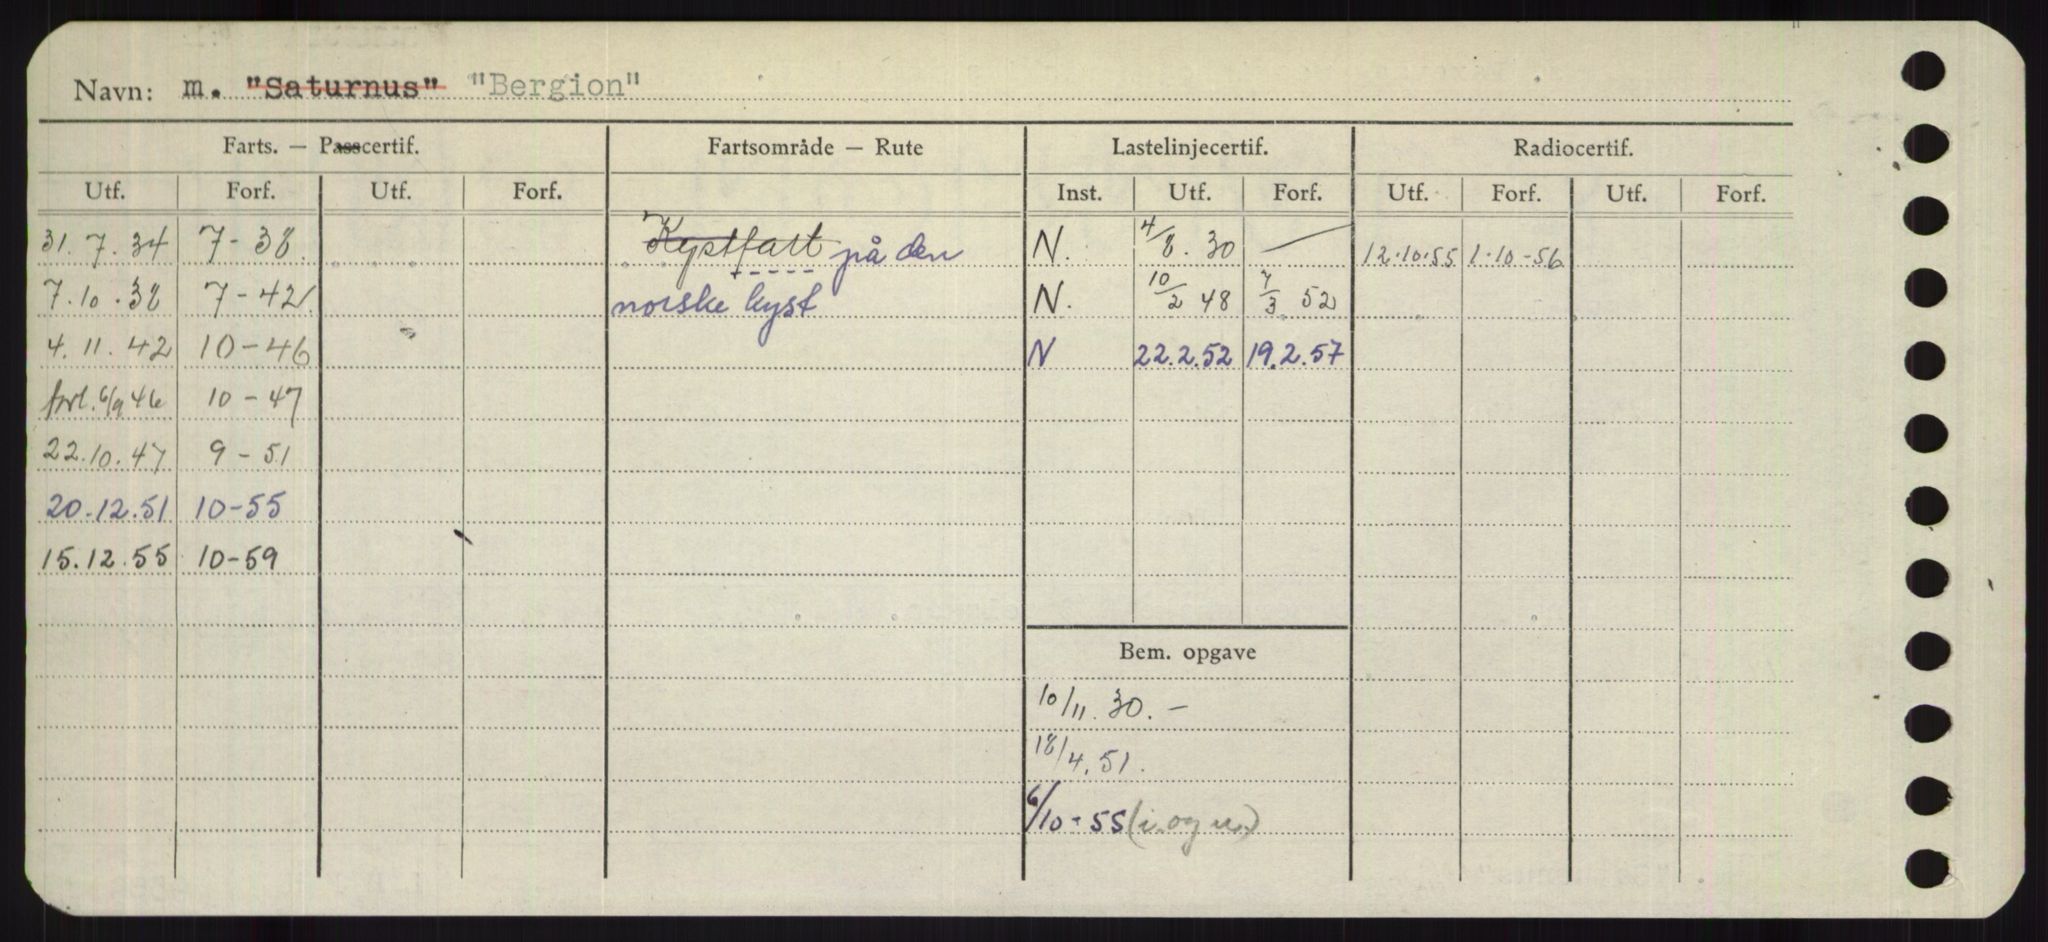 Navn: m. "Saturnus" "Bergion"
Farts. — Passcertif. Fartsområde — Rute Lastelinjecertif. Radiocertif.
Utf. Forf. Utf. Forf. Inst. Utf. Forf. Utf. Forf. Utf. Forf.
31.7.34 7-38. Kystfart på den N. 4/8.30 — 12.10.55 1.10-56
7.10.38 7-42. norske kyst N. 10/2 48 7/3 52
4.11.42 10-46 N 22.2.52 19.2.57
forl. 6/9 46 10-47
22.10.47 9-51
20.12.51 10-55
15.12.55 10-59
Bem. opgave
10/11.30.-
18/4.51.
6/10-55 (i. og u.)